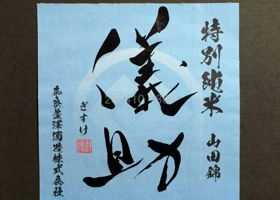 特別純米
山田錦
儀助
ぎすけ
奈良豊澤酒造株式会社